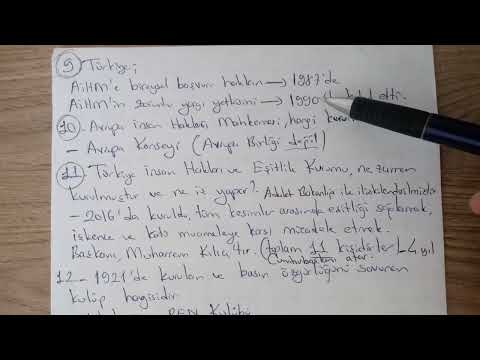 9) Türkiye;
AİHM'e bireysel başvuru hakkını → 1987'de
AİHM'in zorunlu yargı yetkisini → 1990 etti.
10- Avrupa insan Hakları Mahkemesi, hangi
- Avrupa Konseyi (Avrupa Birliği değil)
11- Türkiye insan Hakları ve Eşitlik Kurumu, ne zaman
kurulmuştur ve ne iş yapar?. Adalet Bakanlığı ile ilişkilendirilmiştir
- 2016'da kuruldu, tüm kesimler arasında eşitliği sağlamak,
işkence ve kötü muameleye karşı mücadele etmek.
Başkanı, Muharrem Kılıç'tır. (toplam 11 kişidirler → 4 yıl
Cumhurbaşkanı atar.
12- 1921'de kurulan ve basın özgürlüğünü savunan
kulüp hangisidir
PEN Kulübü